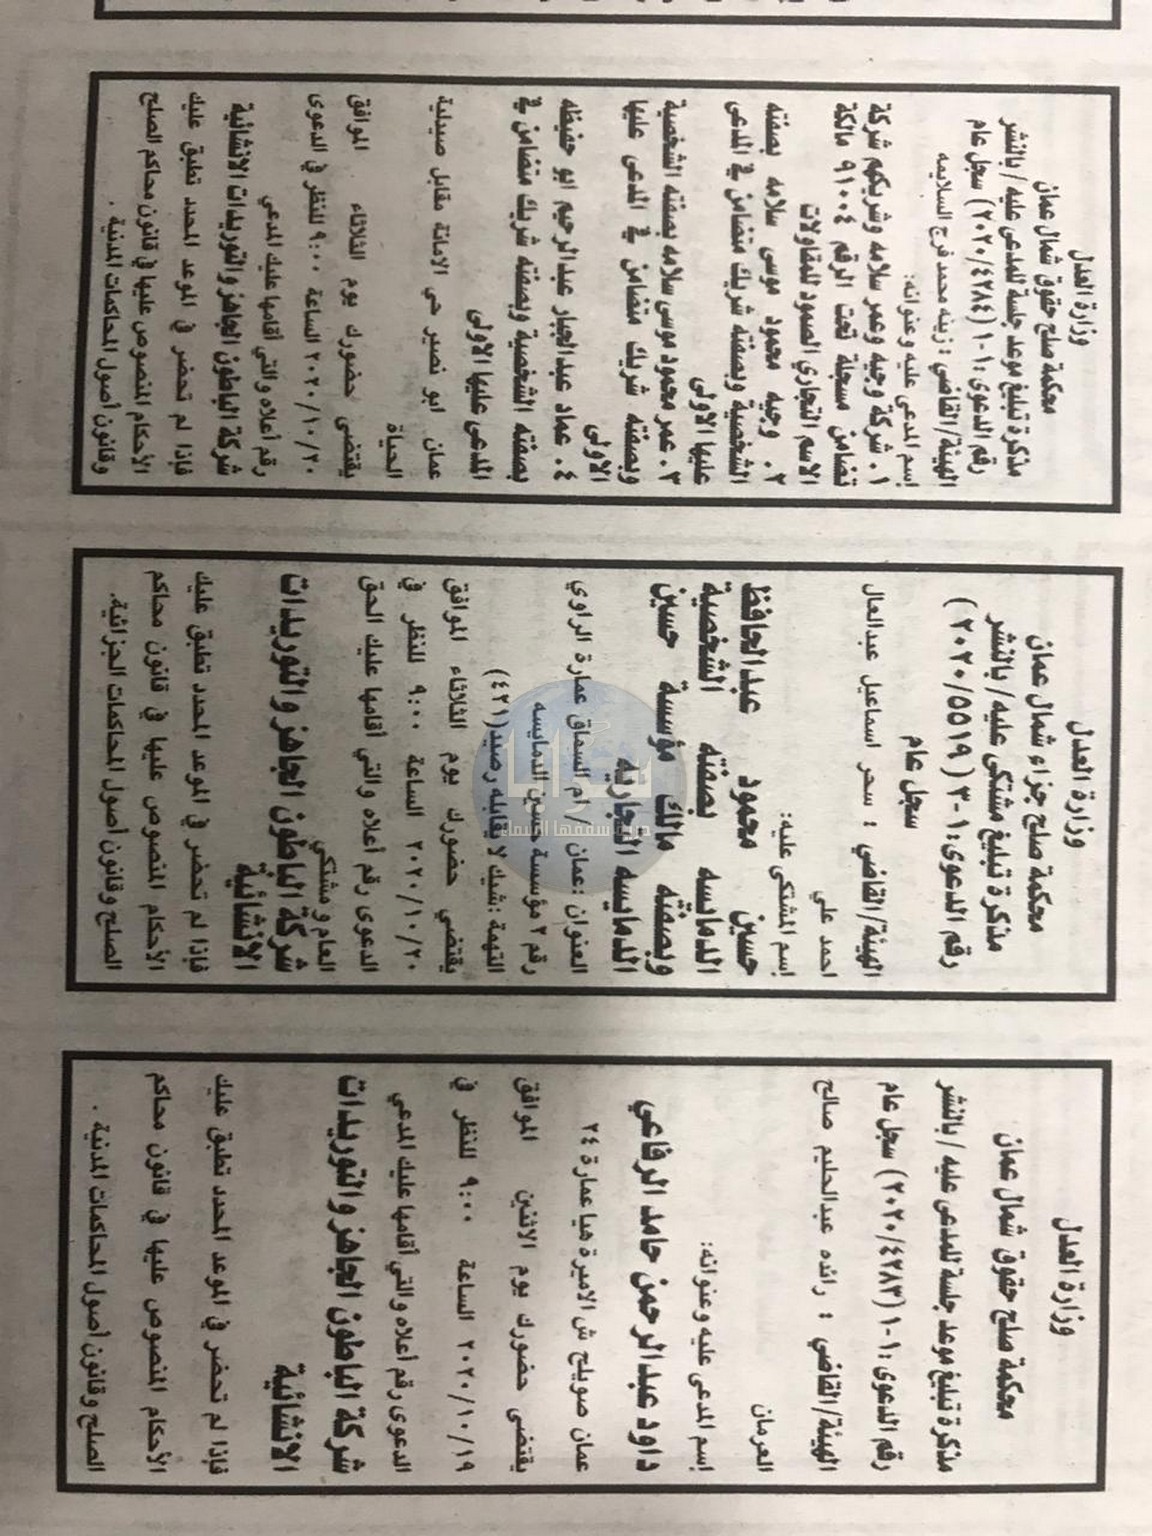 وزارة العدل
محكمة صلح حقوق شمال عمان
مذكرة تبليغ موعد جلسة للمدعى عليه / بالنشر
رقم الدعوى : ١-١ (٢٠٢٠/٤٢٨٤) سجل عام
الهيئة/القاضي : زينه محمد فرج السلايمه
اسم المدعى عليه وعنوانه:
١. شركة وجيه وعمر سلامه وشريكهم شركة
تضامن مسجلة تحت الرقم ٩١٠٠٤ مالكة
الاسم التجاري الصمود للمقاولات
٢. وجيه محمود موسى سلامه بصفته
الشخصية وبصفته شريك متضامن في المدعى
عليها الاولى
٣. عمر محمود موسى سلامه بصفته الشخصية
وبصفته شريك متضامن في المدعى عليها
الاولى
٤. عماد عبدالجبار عبدالرحيم ابو حفيظه
بصفته الشخصية وبصفته شريك متضامن في
المدعى عليها الاولى
عمان ابو نصير حي الامانة مقابل صيدلية
الحياة
يقتضى حضورك يوم الثلاثاء الموافق
٢٠٢٠/١٠/٢٠ الساعة ٩:٠٠ للنظر في الدعوى
رقم أعلاه والتي أقامها عليك المدعي
شركة الباطون الجاهز والتوريدات الانشائية
فإذا لم تحضر في الموعد المحدد تطبق عليك
الأحكام المنصوص عليها في قانون محاكم الصلح
وقانون أصول المحاكمات المدنية .
وزارة العدل
محكمة صلح جزاء شمال عمان
مذكرة تبليغ مشتكى عليه/ بالنشر
رقم الدعوى: ١-٣ (٢٠٢٠/٥٥١٩)
سجل عام
الهيئة/القاضي : سحر اسماعيل عبدالعال
احمد علي
اسم المشتكى عليه:
حسين محمود عبدالحافظ
الدمايسه بصفته الشخصية
وبصفته مالك مؤسسة حسين
الدمايسه التجارية
العنوان :عمان / ام السماق عمارة الراوي
رقم ٢ مؤسسة حسين الدمايسه
التهمة :شيك لا يقابله رصيد(٤٢١)
يقتضي حضورك يوم الثلاثاء الموافق
٢٠٢٠/١٠/٢٠ الساعة ٩:٠٠ للنظر في
الدعوى رقم أعلاه والتي أقامها عليك الحق
العام و مشتكي
شركة الباطون الجاهز والتوريدات
الانشائية
فإذا لم تحضر في الموعد المحدد تطبق عليك
الأحكام المنصوص عليها في قانون محاكم
الصلح وقانون أصول المحاكمات الجزائية.
وزارة العدل
محكمة صلح حقوق شمال عمان
مذكرة تبليغ موعد جلسة للمدعى عليه / بالنشر
رقم الدعوى :١-١ (٢٠٢٠/٤٢٨٣) سجل عام
الهيئة/القاضي : رائده عبدالحليم صالح
العرمان
اسم المدعى عليه وعنوانه:
داود عبدالرحمن حامد الرفاعي
عمان صويلح ش الاميرة هيا عمارة ٢٤
يقتضى حضورك يوم الاثنين الموافق
٢٠٢٠/١٠/١٩ الساعة ٩:٠٠ للنظر في
الدعوى رقم أعلاه والتي أقامها عليك المدعي
شركة الباطون الجاهز والتوريدات
الانشائية
فإذا لم تحضر في الموعد المحدد تطبق عليك
الأحكام المنصوص عليها في قانون محاكم
الصلح وقانون أصول المحاكمات المدنية .
حرية سقفها السماء